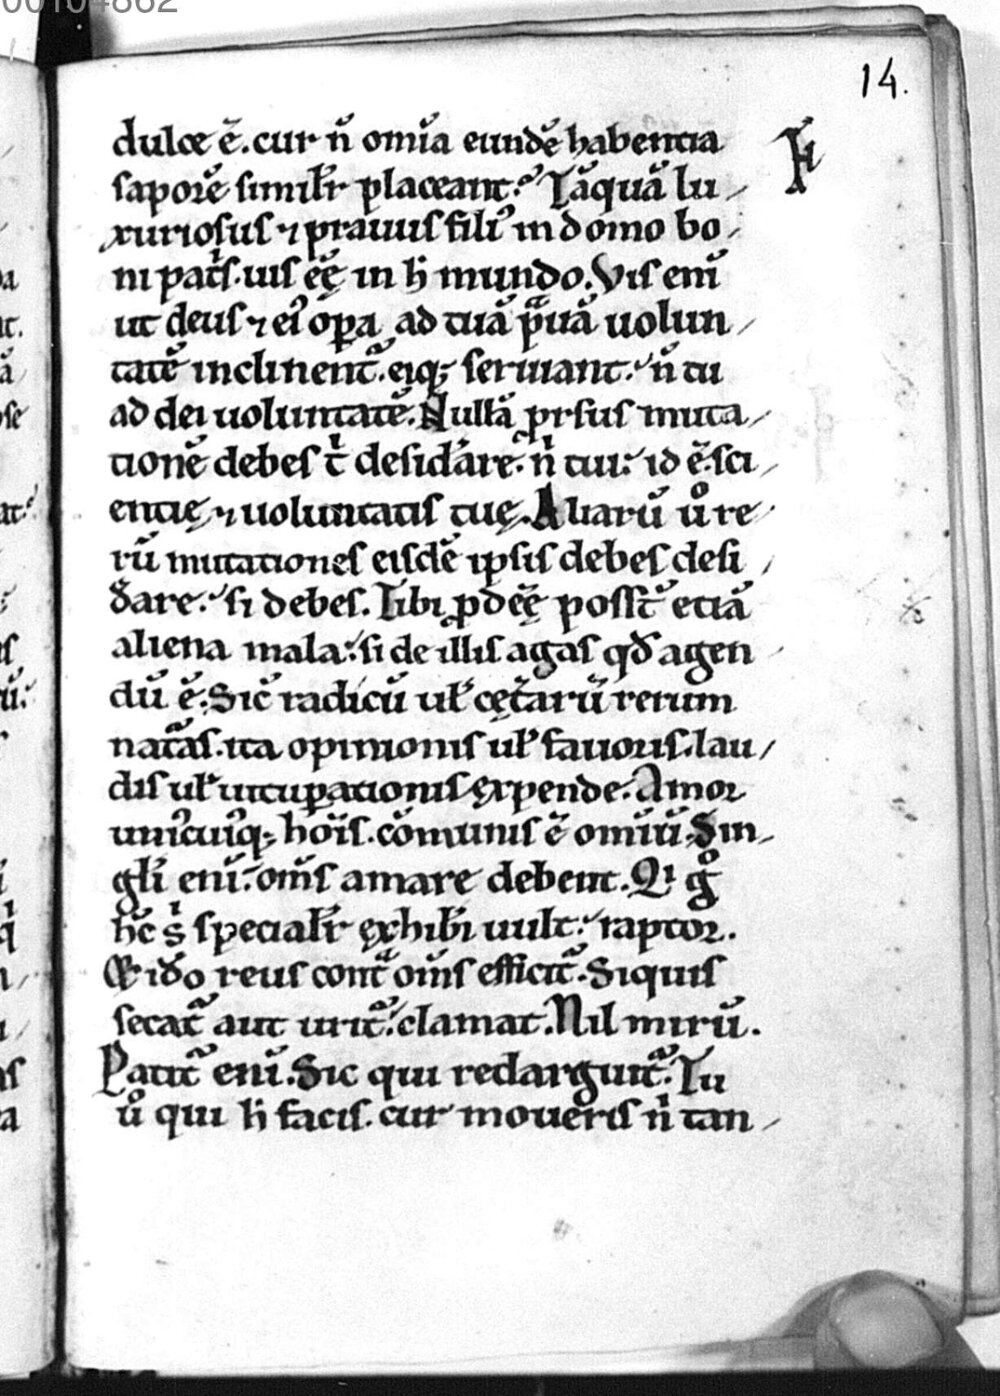 00104862
14.
dulce ē. cur n̄ om̄ia eundē habentia
saporē simil̄r placeant? Tāquā lu
xuriosus ⁊ prauus fili᷒ in domo bo
ni pat̄s. uis eę̄ in h̄ mundo. Vis eni̅
ut deus ⁊ ei᷒ oꝑa ad tuā p̄uā uolun
tatē inclinent᷑. eiq; seruiant. n̄ tu
ad dei uoluntatē. Nullā ꝓrsus muta
tionē debes t̄ desid̄are. nͥ tui. id ē. sci
entię ⁊ uoluntatis tuę. Aliarū uͦ re
rū mutationes eisdē ipsis debes desi
d̄are. si debes. Tibi ꝓdeę̄ possēt etiā
aliena mala. si de illis agas qđ agen
dū ē. Sic᷑ radicū ul̄ cęt̄arū rerum
nat᷑as. ita opinionis ul̄ fauoris. lau
dis ul̄ uituꝑationis ęxpende. Amor
uni᷒cui᷒q; hōis. cōmunis ē omīū. Sin
gl̄i eni̅. om̄s amare debent. Qi gͦ
h̄c sͥ special̄r ęxhib̄i uult. raptor.
Et iđo reus cont̄ om̄s efficit᷑. Siquis
secat᷑ aut urit᷑. clamat. Nil mirū.
Patit᷑ eni̅. Sic qui redarguit᷑. Tu
uͦ qui h̄ facis. cur moueris nͥ tan